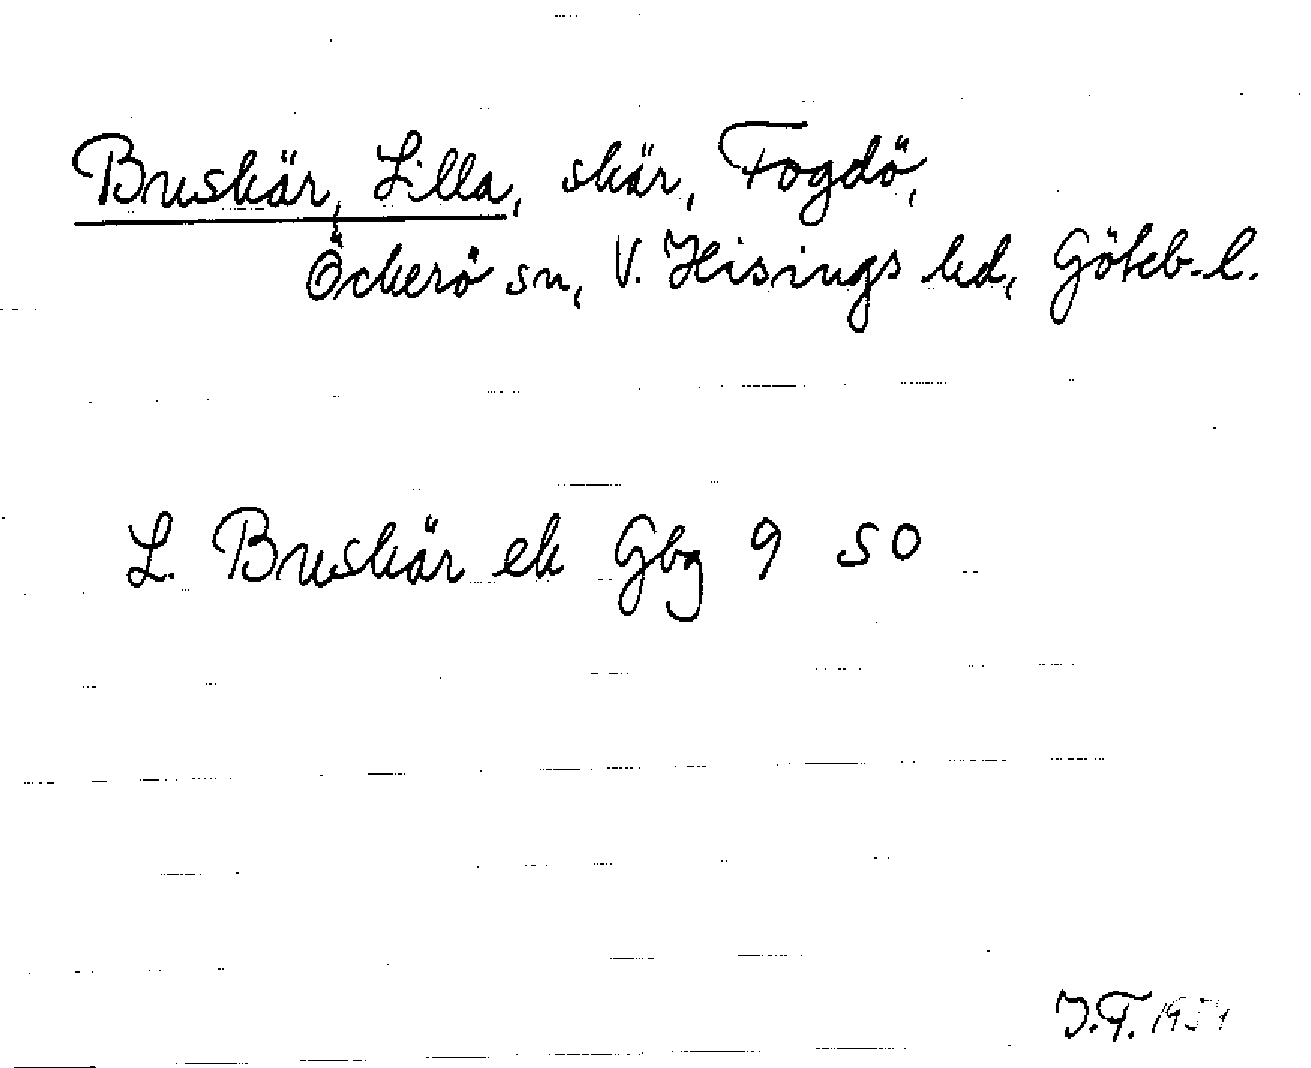 Buskär, Lilla, skär, Fogdö,
Öckerö sn, V. Hisings hd, Göteb. l.
L. Buskär ek Gbg 9 SO
J.F. 1954